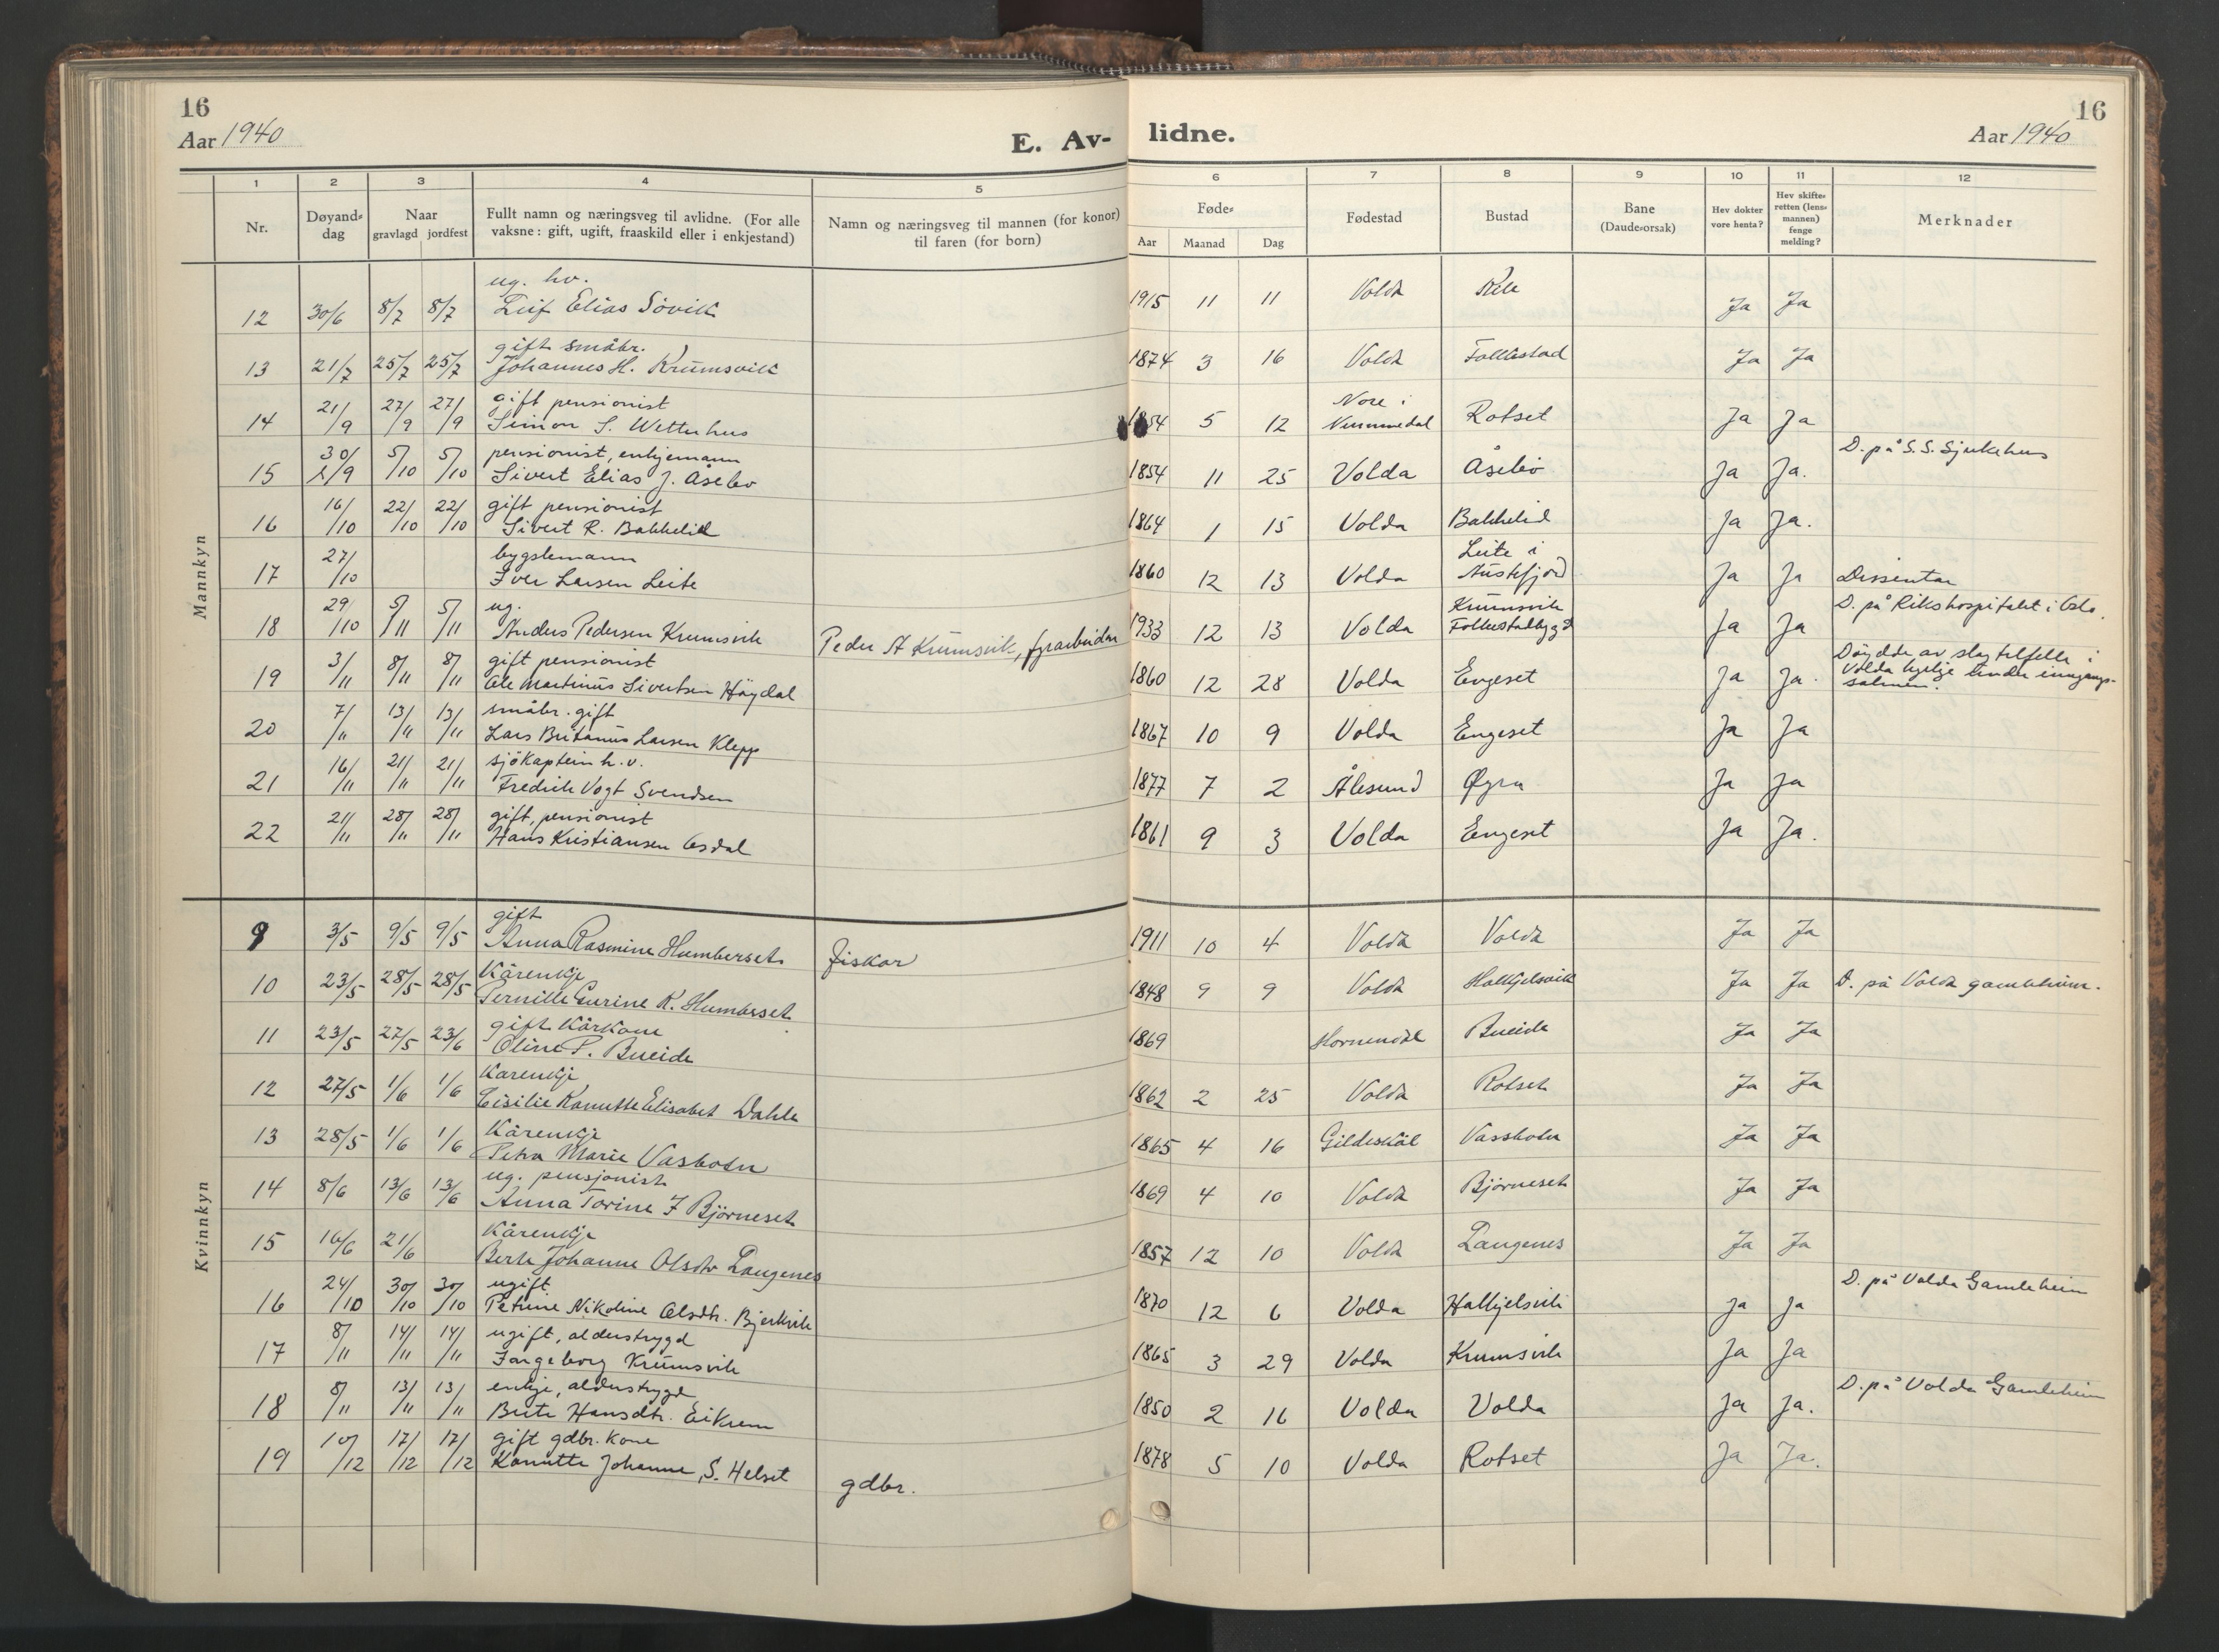 16
Aar 1940
E. Av-
lidne.
16
Aar 1940
1 2 3 4 5 6 7 8 9 10 11 12
Nr.
Døyand-
dag
Naar
gravlagd jordfest
Fullt namn og næringsveg til avlidne. (For alle
vaksne: gift, ugift, fraaskild eller i enkjestand)
Namn og næringsveg til mannen (for konor)
til faren (for born)
Føde-
Aar Maanad Dag
Fødestad
Bustad
Bane
(Daude-orsak)
Hev dokter
vore henta?
Hev skifte-
retten (lens-
mannen)
fenge
melding?
Merknader
Mannkyn
ug. hv.
12 30/6 8/7 8/7 Leif Elias Sövik 1915 11 11 Volda Ja Ja
gift småbr.
13 21/7 25/7 25/7 Johannes H. Krumsvik 1874 3 16 Volda Folkestad Ja Ja
gift pensionist
Nore i
14 21/9 27/9 27/9 Simon S. Wetterhus 1854 5 12 Nummedal Rotset Ja Ja
pensionist, enkjemann
D. på S.S. Sjukehus
15 30/9 5/10 5/10 Sivert Elias J. Åsebö 1854 11 25 Volda Åsebö Ja Ja.
gift pensionist
16 16/10 22/10 22/10 Sivert R. Bakkelid 1864 1 15 Volda Bakkelid Ja Ja.
bygslemann
Leite i
17 27/10 Iver Larsen Leite 1860 12 13 Volda Austefjord Ja Ja Dissentar
ug.
Krumsvik
D. på Rikshospitalet i Oslo.
18 29/10 5/11 5/11 Anders Pedersen Krumsvik Peder A Krumsvik, fyrarbeidar 1933 12 13 Volda Folkestadbygd Ja Ja
gift pensionist
Döydde av slagtilfelle i
19 3/11 8/11 8/11 Ole Martinus Sivertsen Höydal 1860 12 28 Volda Engeset Ja Ja. Volda kyrkje under inngangs-
salmen.
småbr. gift
20 7/11 13/11 13/11 Lars Britanus Larsen Klepp 1867 10 9 Volda Engeset Ja Ja
sjökaptein h.v.
21 16/11 21/11 21/11 Fredrik Vogt Svendsen 1877 7 2 Ålesund Øyra Ja Ja
gift, pensionist
22 21/11 28/11 28/11 Hans Kristiansen Osdal 1861 9 3 Volda Engeset Ja Ja.
Kvinnkyn
gift
9 3/5 9/5 9/5 Anna Rasmine Humberset fiskar 1911 10 4 Volda Volda Ja Ja
Kårenkje
10 23/5 28/5 28/5 Pernille Gurine R. Humberset 1848 9 9 Volda Halkjelsvik Ja Ja D. på Volda gamleheim.
gift Kårkone
11 23/5 27/5 23/6 Oline P. Bueide 1869 Hornindal Bueide Ja Ja
Kårenkje
12 27/5 1/6 1/6 Cisilie Kanutte Elisabet Dahle 1862 2 25 Volda Rotset Ja Ja
Kårenkje
13 28/5 1/6 1/6 Petra Marie Vasbotn 1865 4 16 Gildeskål Vassbotn Ja Ja
ug. pensjonist
14 8/6 13/6 13/6 Anna Torine J Björneset 1869 4 10 Volda Björneset Ja Ja
Kårenkje
15 16/6 21/6 Berte Johanne Olsdtr Langenes 1857 12 10 Volda Langenes Ja Ja
ugift
D. på Volda Gamleheim
16 24/10 30/10 30/10 Petrine Nikoline Olsdtr. Bjerkvik 1870 12 6 Volda Halkjelsvik Ja Ja
ugift, alderstrygd
17 8/11 14/11 14/11 Ingeborg Krumsvik 1865 3 29 Volda Krumsvik Ja Ja
enkje, alderstrygd
D. på Volda Gamleheim
18 8/11 13/11 13/11 Brite Hansdtr. Eikrem 1850 2 16 Volda Volda Ja Ja.
gift gdbr. kone
19 10/12 17/12 17/12 Kanutte Johanne S. Helset gdbr. 1878 5 10 Volda Rotset Ja Ja.